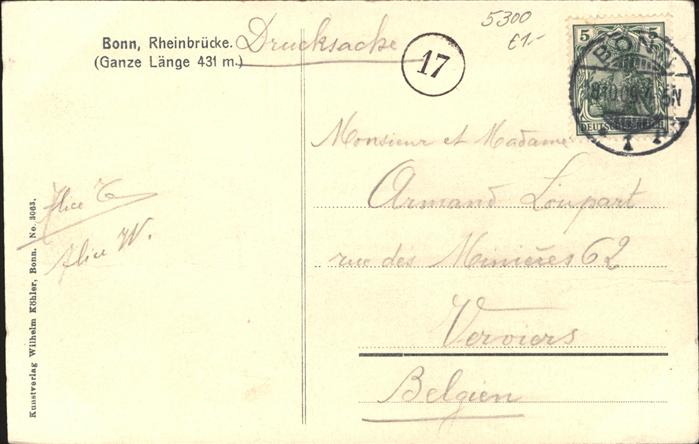 Bonn, Rheinbrücke. Drucksache
(Ganze Länge 431 m.)
17
5300
£1.-
5 5
DEUTSCHES REICH
BONN
1
Monsieur et Madame
Armand Loupart
rue des Minières 62
Verviers
Belgien
Alice T
Alice W.
Kunstverlag Wilhelm Köhler, Bonn. No. 3063.